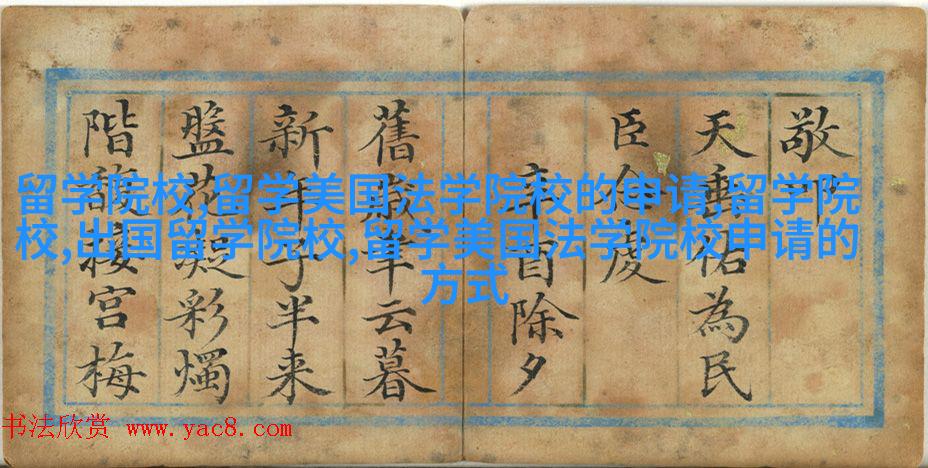 敬叩
天垂佑為民
臣虔
辛酉除夕
舊歲年云暮
新年子半来
盤花凝彩燭
階馥接宮梅
留学院校,留学美国法学院校的申请,留学院
校,出国留学院校,留学美国法学院校申请的
方式
书法欣赏 www.yac8.com